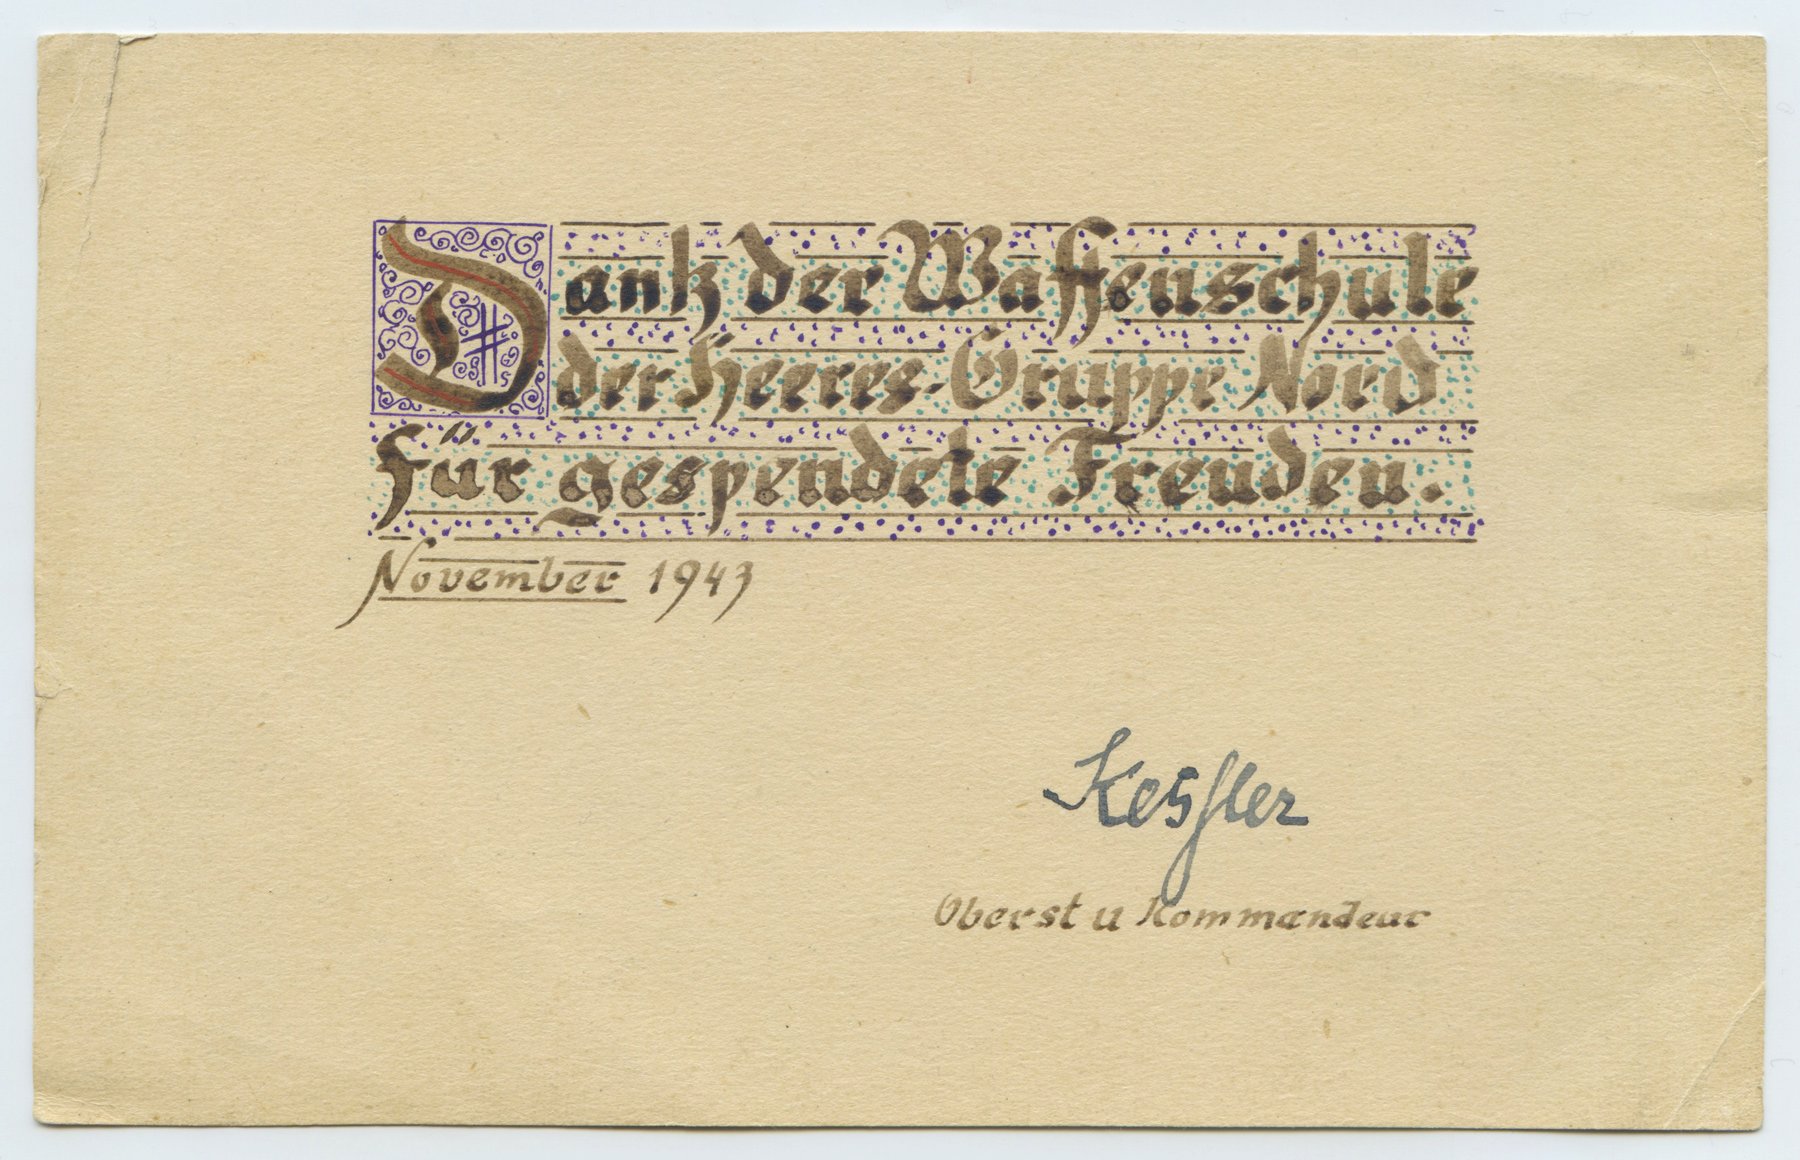 Dank der Waffenschule
der Heeres-Gruppe Nord
für gespendete Freuden.
November 1943
Kessler
Oberst u Kommandeur